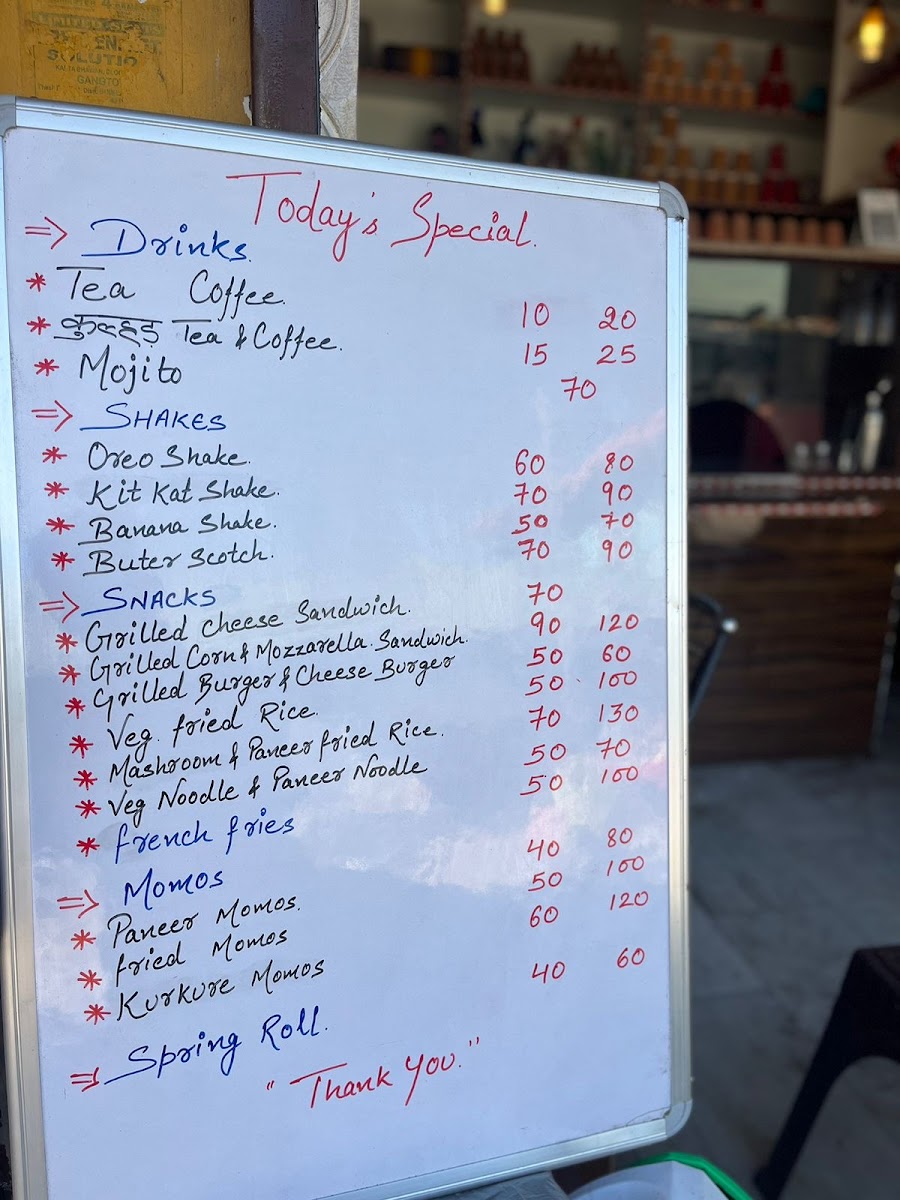 SOLUTIO
GANGTO
Today's Special.
⇒ Drinks
* Tea Coffee. 10 20
* कुल्हड़ Tea & Coffee. 15 25
* Mojito 70
⇒ SHAKES
* Oreo Shake. 60 80
* Kit Kat Shake. 70 90
* Banana Shake. 50 70
* Buter Scotch. 70 90
⇒ SNACKS
* Grilled cheese Sandwich. 70
* Grilled Corn & Mozzarella Sandwich. 90 120
* Grilled Burger & Cheese Burger 50 60
* Veg. fried Rice. 50 100
* Mashroom & Paneer fried Rice. 70 130
* Veg Noodle & Paneer Noodle 50 70
* french fries 50 100
⇒ Momos
* Paneer Momos. 40 80
* fried Momos 50 100
* Kurkure Momos 60 120
⇒ Spring Roll. 40 60
"Thank you."